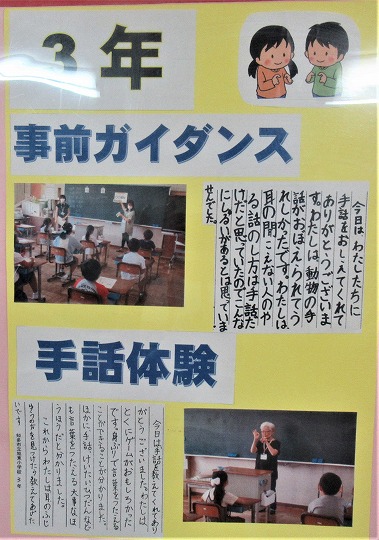 ３年
事前ガイダンス
今日は、わたしたちに
手話をおしえてくれて
ありがとうございま
す。わたしは、動物の手
話がおぼえられてう
れしかったです。わたしは、
耳の聞こえない人のや
る話のし方は手話だ
けだと思っていたのでこんな
にしゅるいがあるとは思っていま
せんでした。
手話体験
今日は手話を教えてくれてあり
がとうございました。わたしは、
とくにゲームがおもしろかった
です。身ぶりで言葉をつたえる
ことができることが分かりました。
ほかに、手話
も言葉をつたえる大事なほ
うほうだと分かりました。
これからわたしは耳のふじ
ゆうな方を見つけたら教えてあげた
いです。
小学校 3年